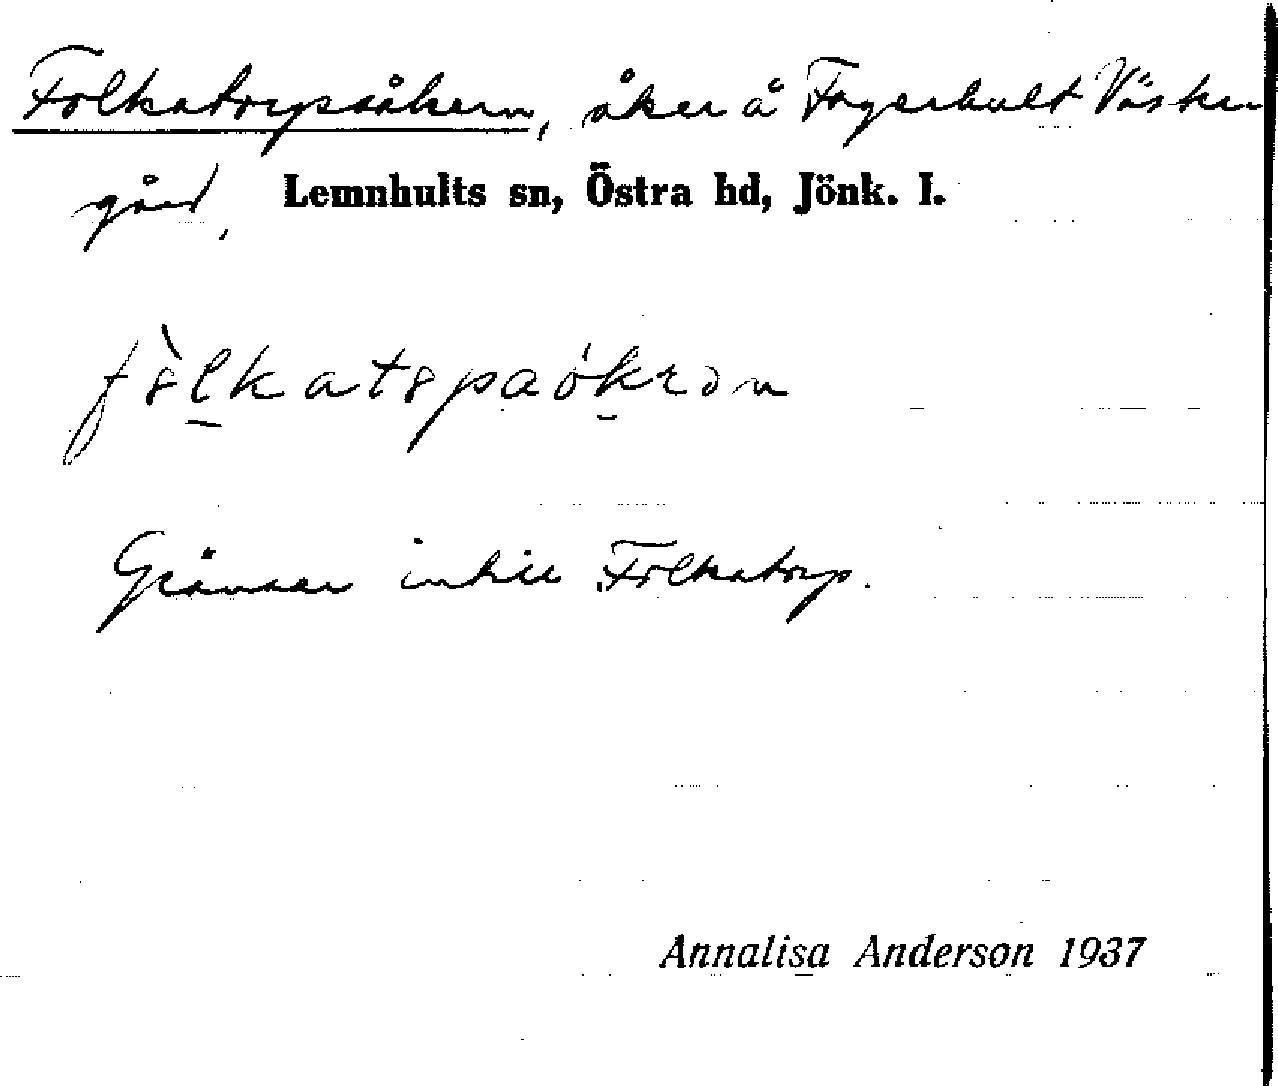 Folkatorpsåkern, åker å Fagerhult Väster
gård, Lemnhults sn, Östra hd, Jönk. l.
Gränsar intill Folkatorp.
Annalisa Anderson 1937